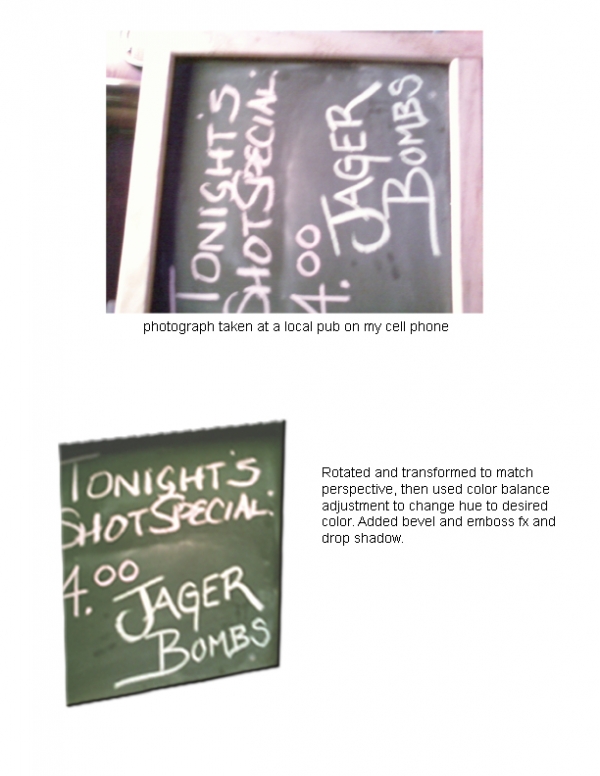 TONIGHT'S
SHOT SPECIAL.
4.00
JAGER
BOMBS
photograph taken at a local pub on my cell phone
TONIGHT'S
SHOT SPECIAL.
4.00
JAGER
BOMBS
Rotated and transformed to match
perspective, then used color balance
adjustment to change hue to desired
color. Added bevel and emboss fx and
drop shadow.